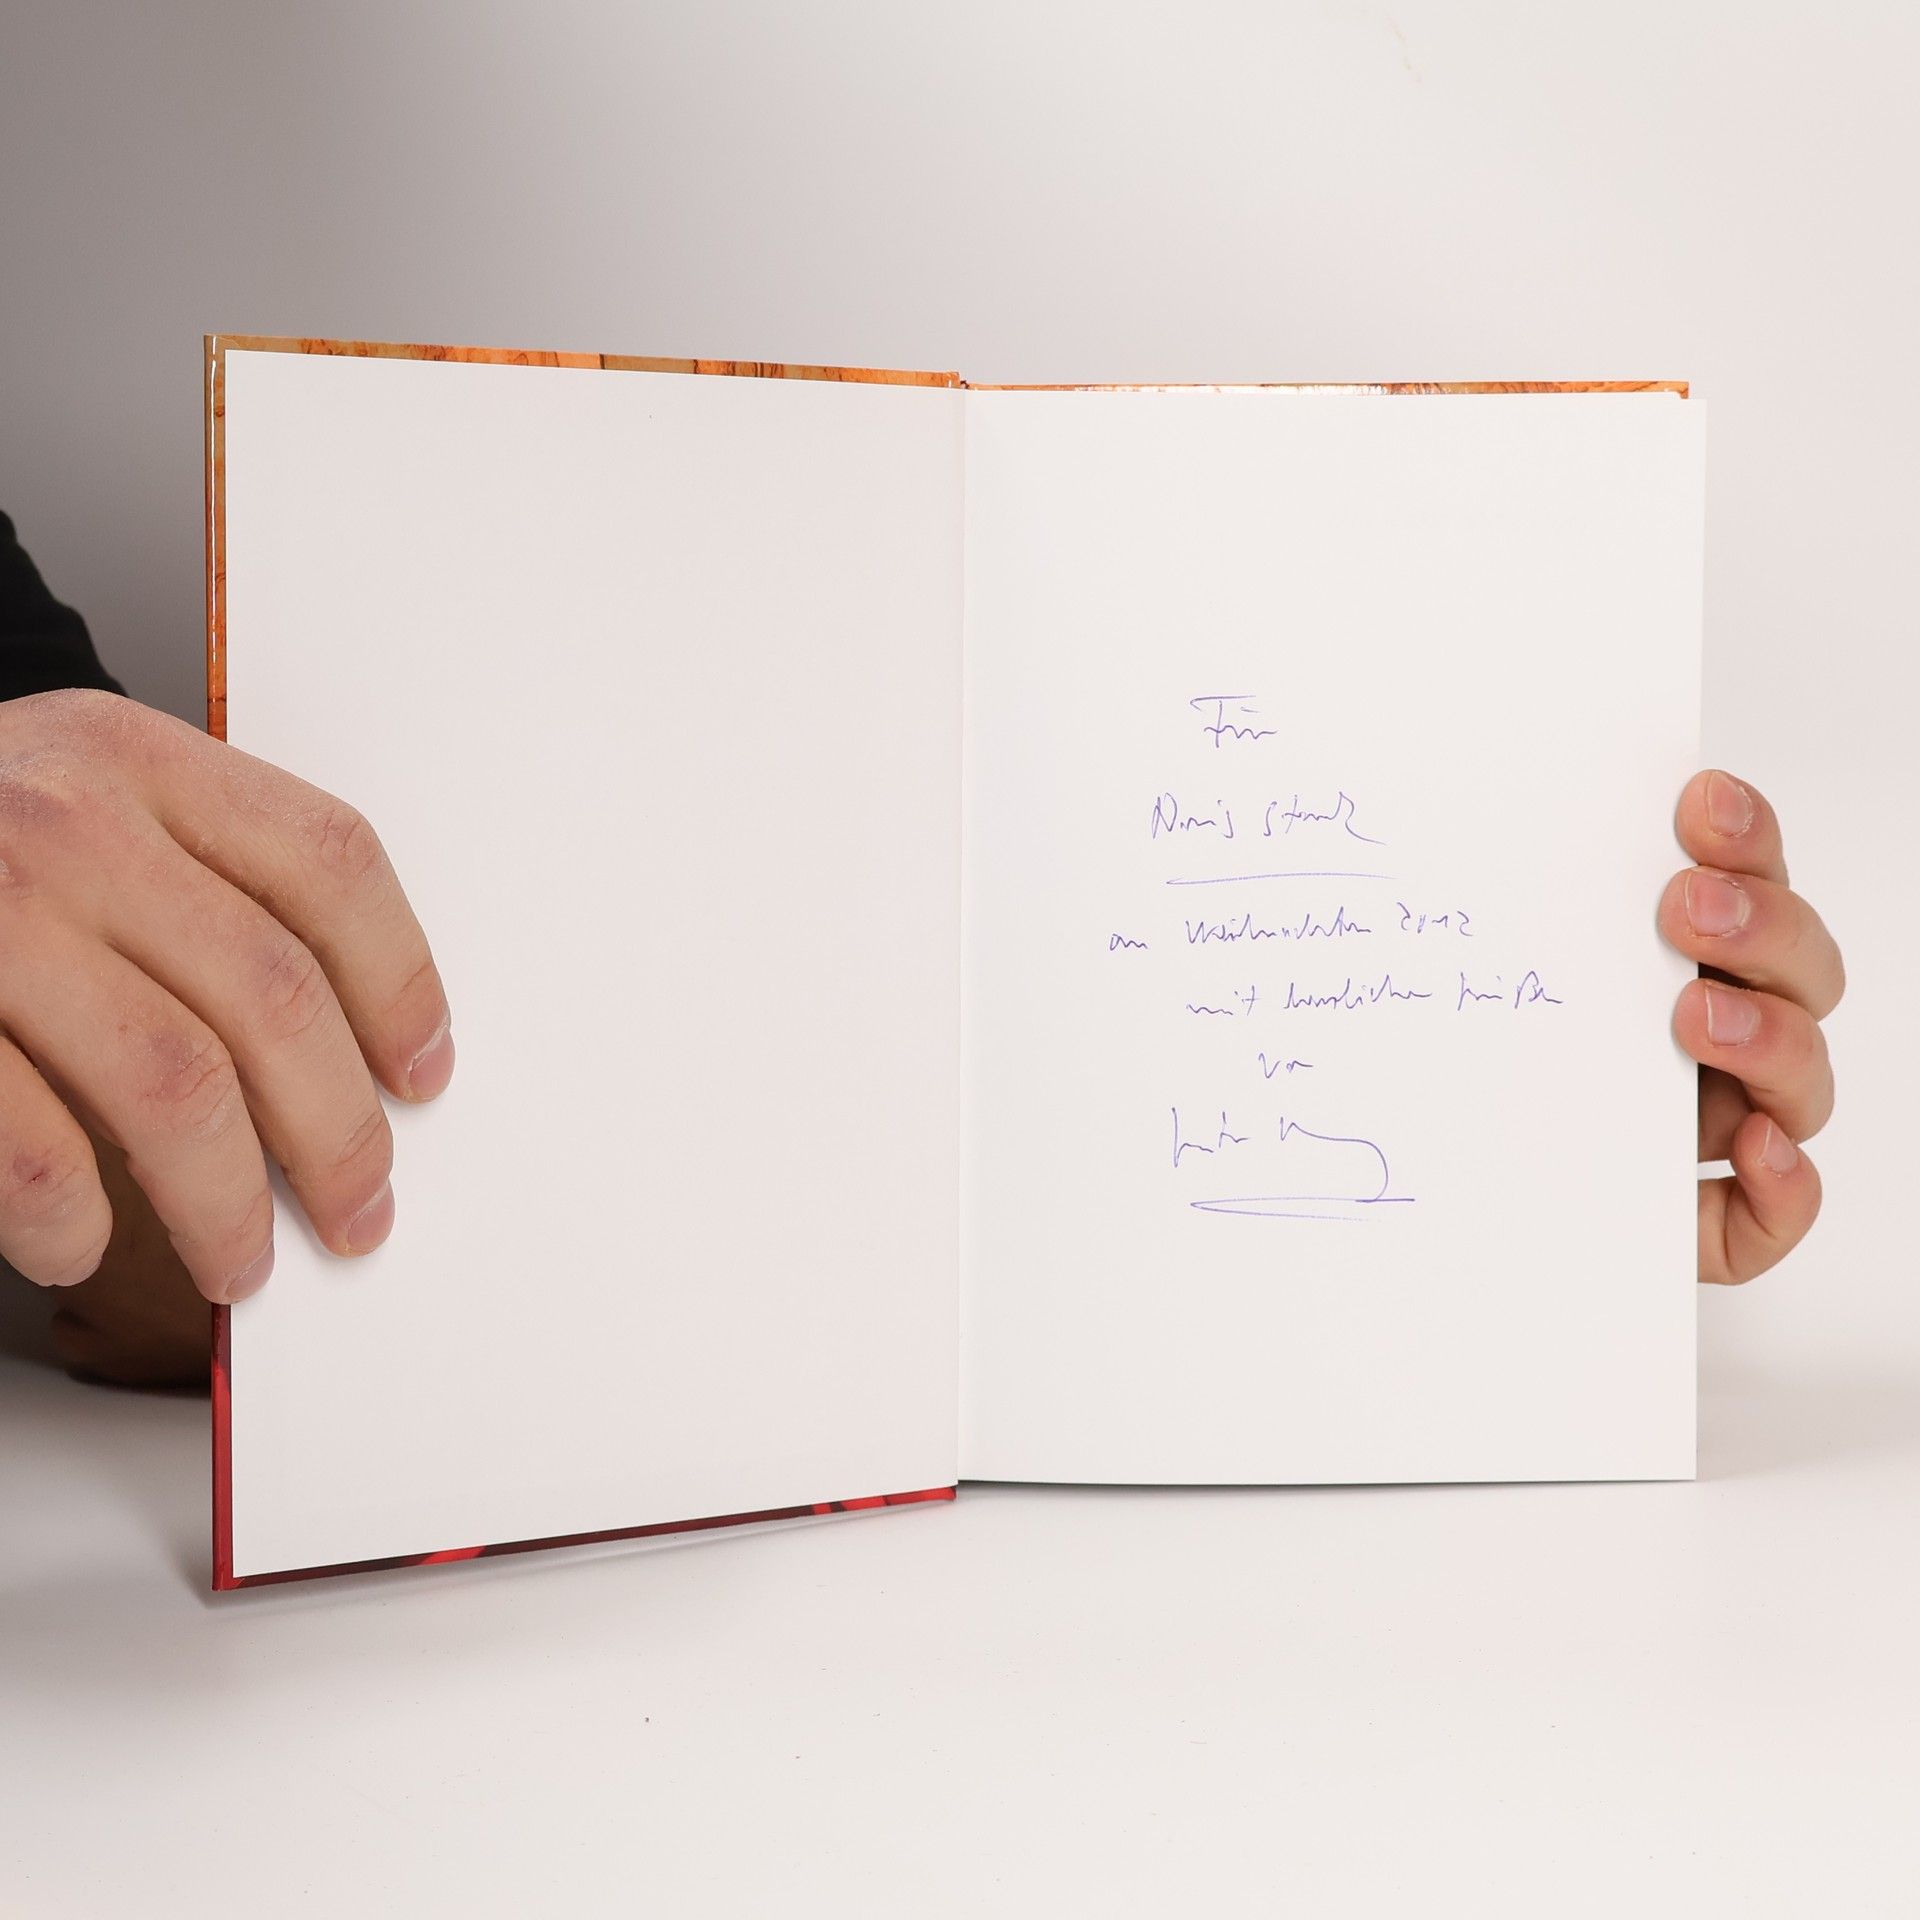 Für
Doris Stark
an Weihnachten 2012
mit herzlichen Grüßen
von